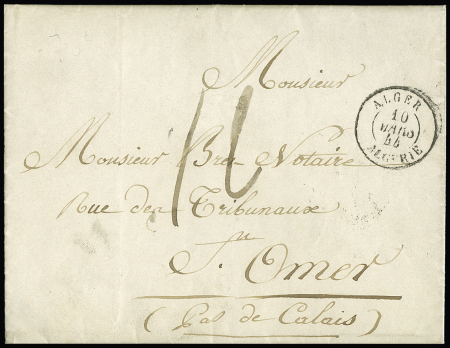 Monsieur
Monsieur Notaire
Rue des Tribunaux
St. Omer
(Pas de Calais)
ALGER
10
MARS
ALGERIE